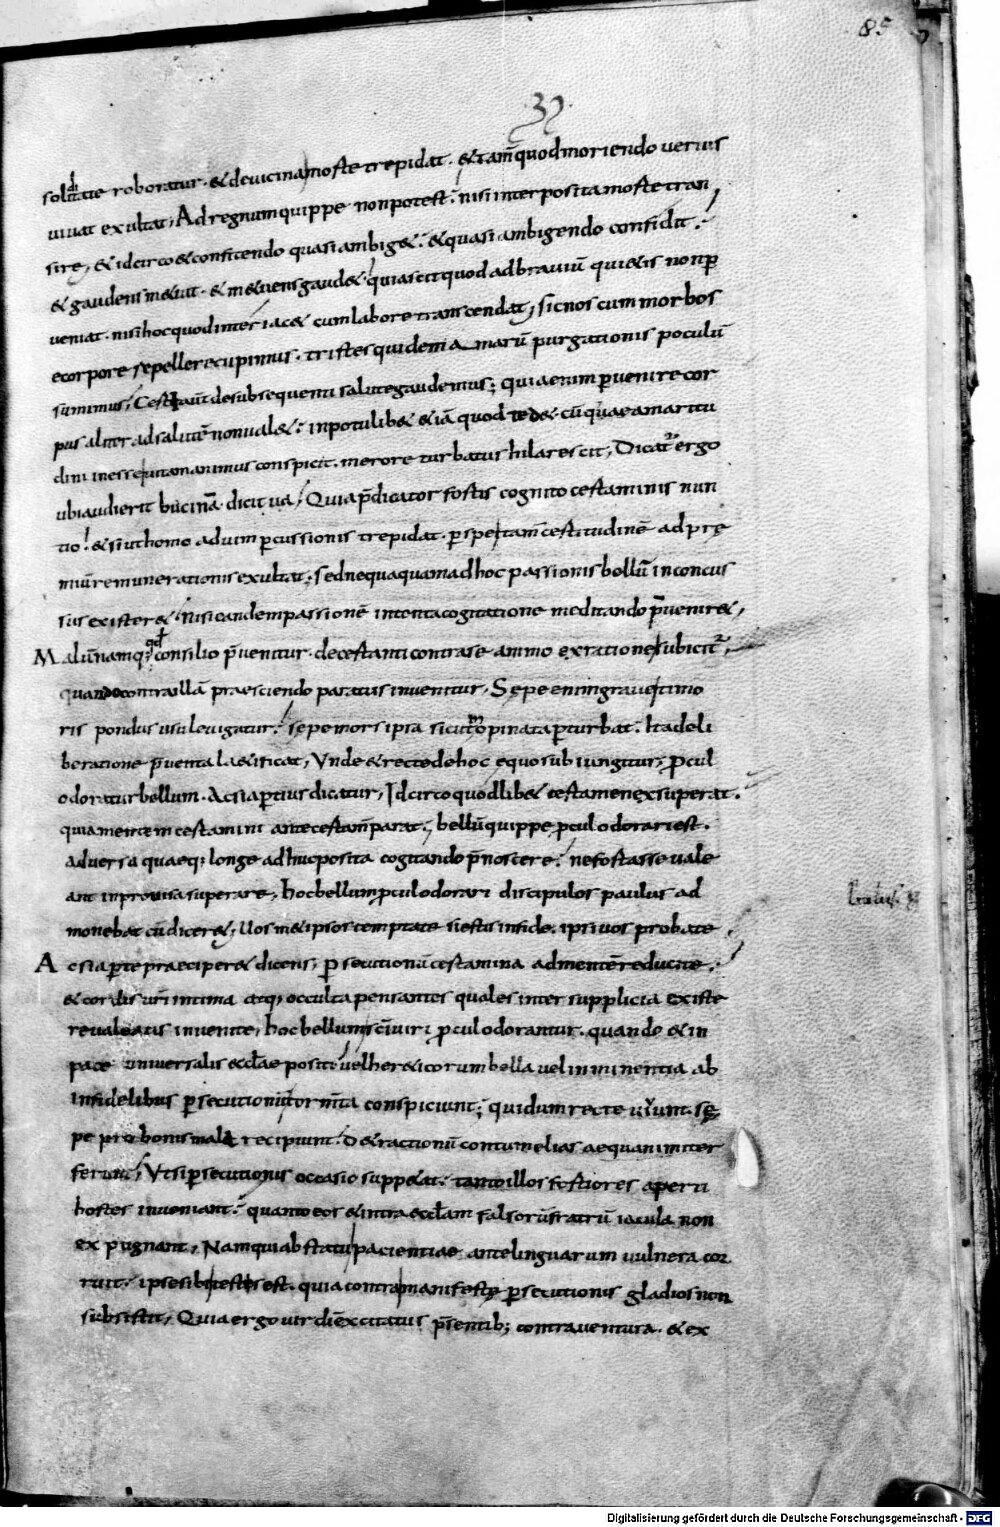 85
32
soliditate roboratur. & de uicina morte trepidat. & tam̄ quod moriendo uerius
uiuat exultat; Ad regnum quippe non potest. nisi interposita morte tran
sire, & idcirco & confitendo quasi ambig&. & quasi ambigendo confidit.
& gaudens m&uit. & m&uens gaud&. quia scit quod ad brauiū qui&is non ꝑ
ueniat. nisi hoc quod interiac& cum labore transcendat; sic nos cum morbos
e corpore repellere cupimus. tristes quidem amarū purgationis poculū
sumimus; Certi aut̄ de subsequenti salute gaudemus; quia enim ꝑuenire cor
pus aliter ad salutē non ual&. in potu lib& & iā quod ted& cū quia amaritu
dini inesse uitam animus conspicit. merore turbatus hilarescit; Dicat̄ ergo
ubi audierit bucinā. dicit ua; Quia p̄dicator fortis cognito certaminis nun
tio. & si ut homo ad uim ꝑcussionis trepidat. ꝑ spei tam̄ certitudinē ad prę
miū remunerationis exultat; sed nequaquam ad hoc passionis bellū inconcus
sus exister&. nisi eandem passionē intenta cogitatione meditando p̄uenir&;
Malū namq; qd̄ consilio p̄uenitur. decertanti contra se animo ex ratione subicit̄;
quando contra illā praesciendo paratus inuenitur. Sępe enim graue timo
ris pondus usu leuigatur. sępe mors ipsa sicut inopinata ꝑturbat. Ita deli
beratione p̄uenta l&ificat; Unde & recte de hoc equo subiungitur; ꝓcul
odoratur bellum. Ac si aꝑtius dicatur; Idcirco quodlib& certamen exsuperat.
quia mentem certamini ante certam̄ parat; bellū quippe ꝓcul odorari est.
aduersa quaeq; longe adhuc posita cogitando p̄noscere. ne fortasse uale
ant inprouisa superare; hoc bellum ꝓcul odorari discipulos paulus ad
monebat cū dicer&; Uos m&ipsos temptate si estis in fide. ipsi uos probate;
Ac si aꝑte praeciper& dicens; ꝑsecutionū certamina ad mentē reducite.
& cordis ur̄i intima atq; occulta pensantes quales inter supplicia existe
re ualeatis inuenite; hoc bellum sc̄i uiri ꝓcul odorantur. quando & in
pace uniuersalis ęccl̄ae positi uel her&icorum bella uel inminentia ab
infidelibus ꝑsecutionū tormīta conspiciunt; qui dum recte uiuunt. sę
pe pro bonis mala recipiunt. d&ractionū contumelias aequanimiter
ferunt; Ut si ꝑsecutionis occasio supp&at. tanto illos fortiores aperti
hostes inueniant. quanto eos & intra ęccl̄am falsorū fratrū iacula non
expugnant; Nam qui ab statu pacientiae ante linguarum uulnera cor
ruit. ipse sibi testis est. quia contra manifestę ꝑsecutionis gladios non
subsistit; Quia ergo uir dī excitatus p̄sentib; contra uentura. & ex
Digitalisierung gefördert durch die Deutsche Forschungsgemeinschaft - DFG